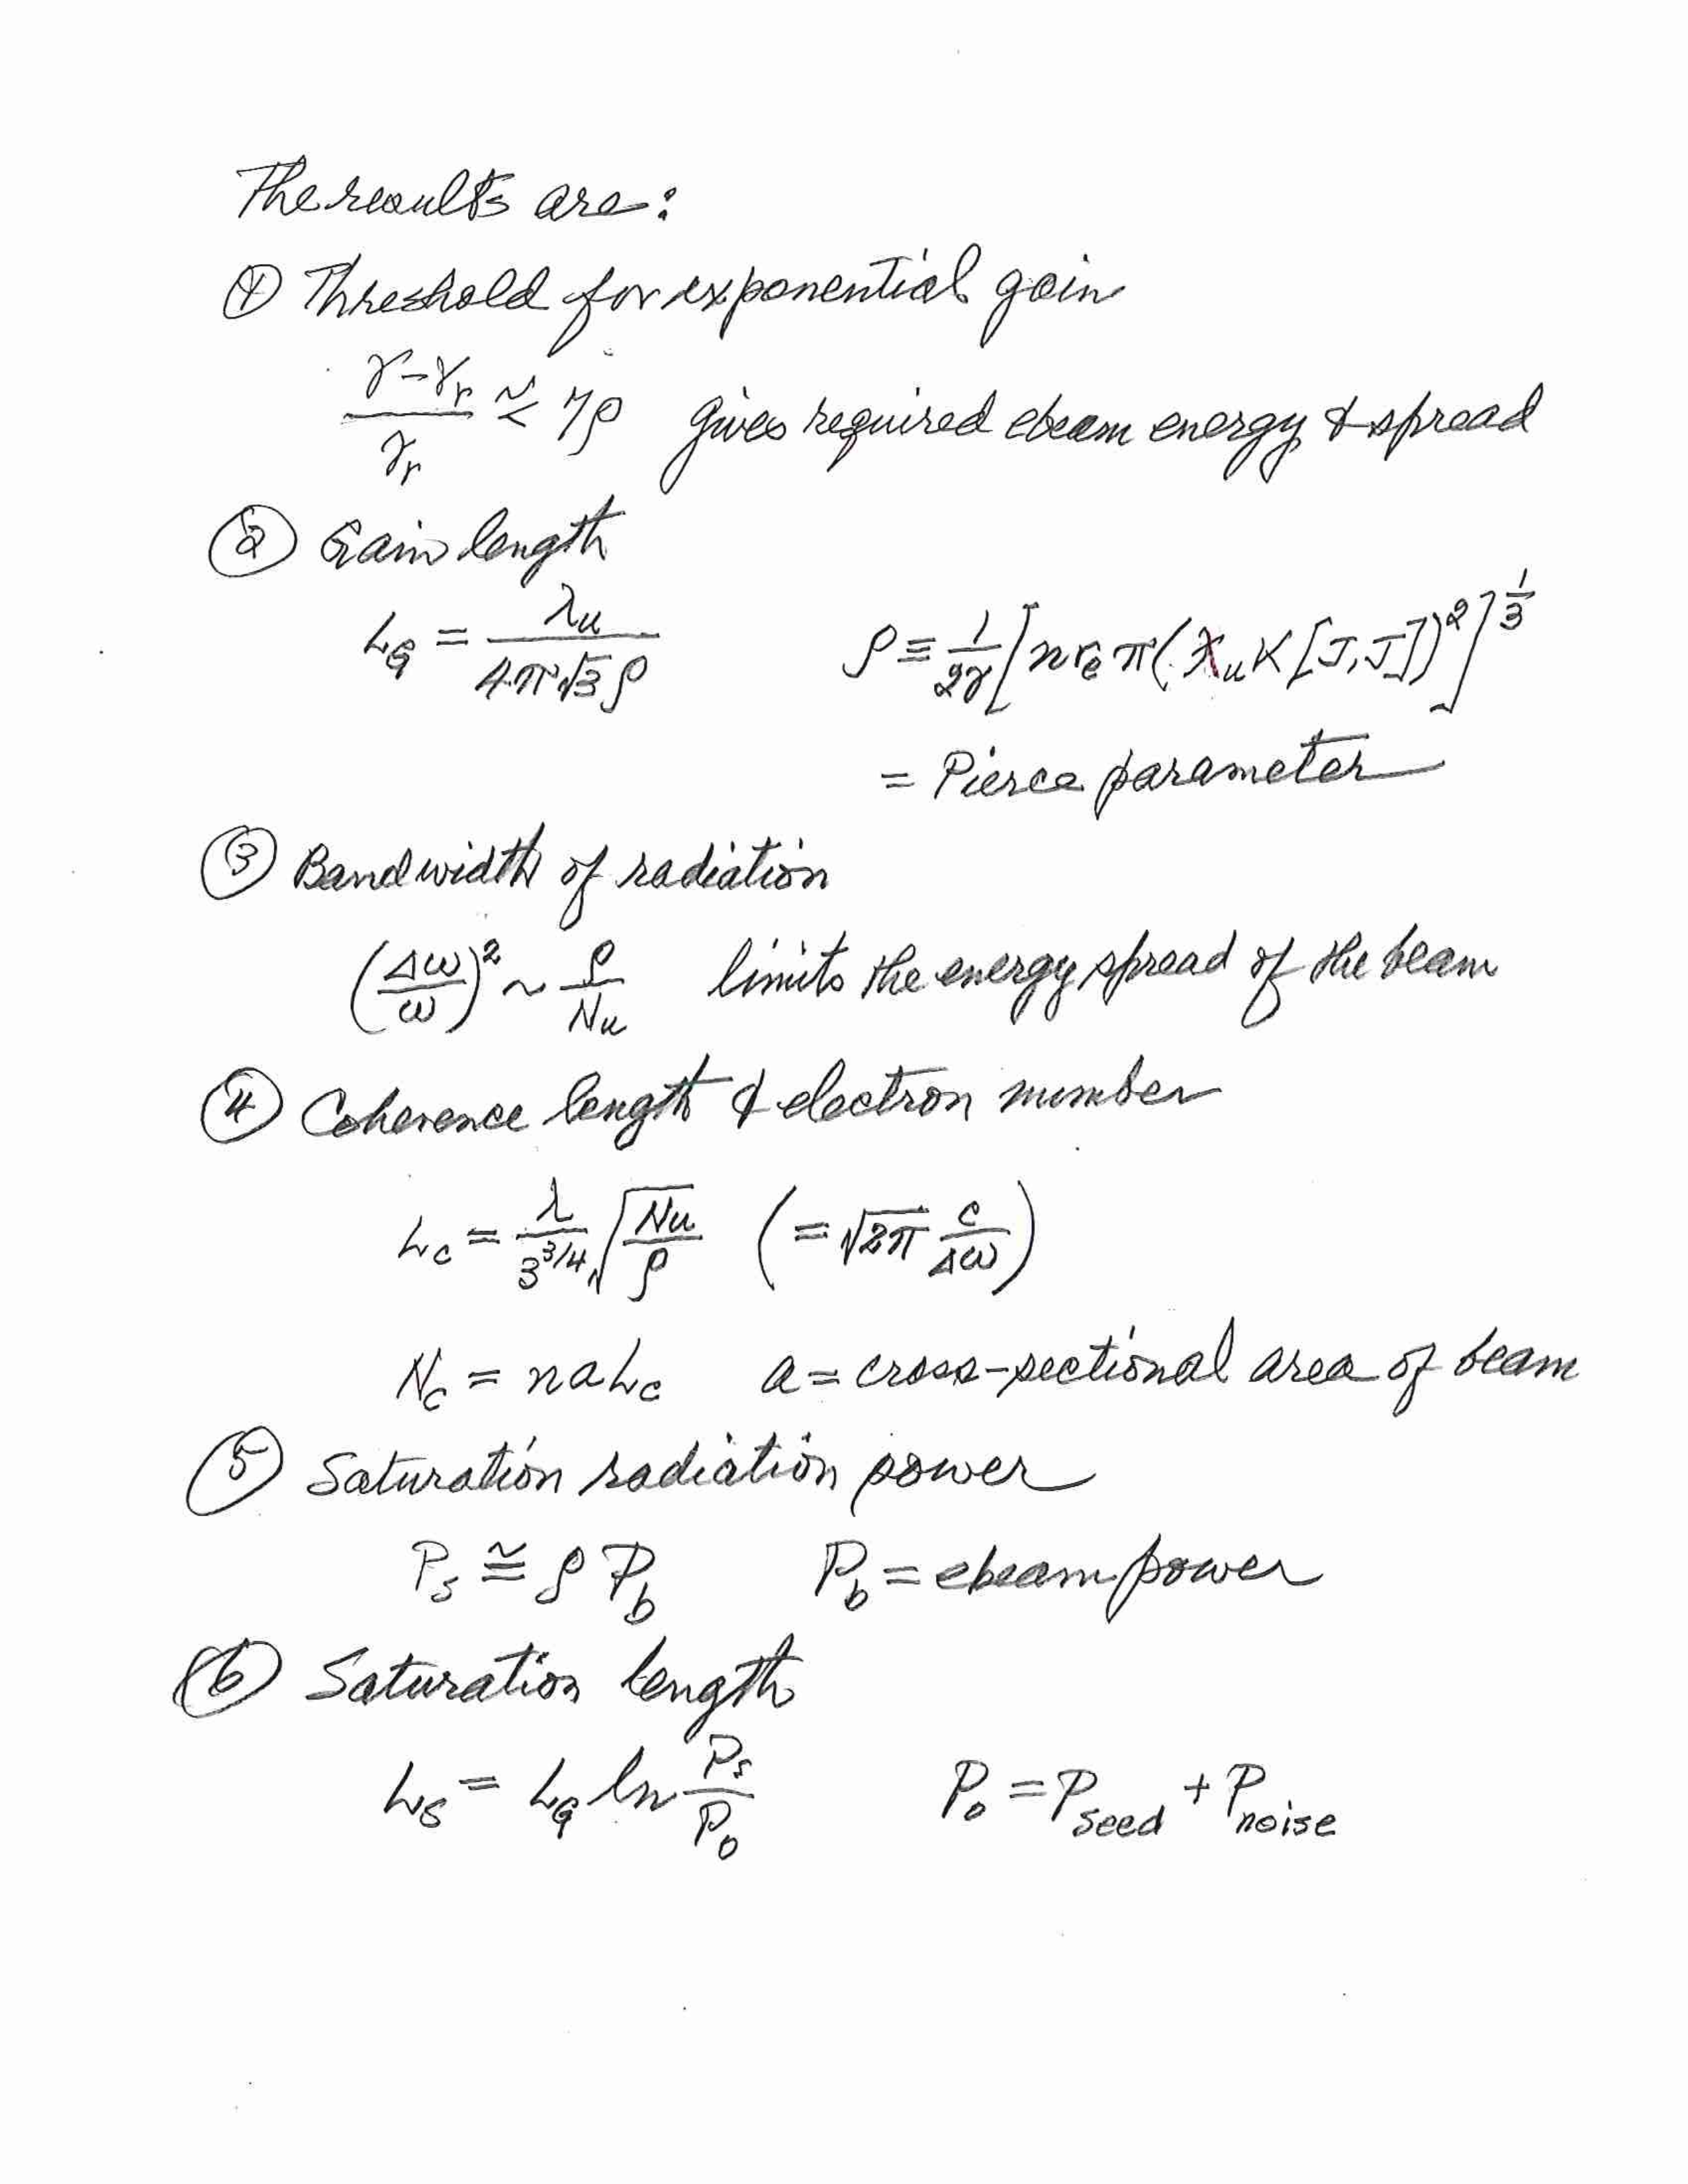 The results are:
① Threshold for exponential gain
(γ-γr)/γr ≲ ηρ gives required ebeam energy & spread
② Gain length
L_G = λu/(4π√3 ρ) ρ ≡ 1/2γ [n re π(ƛu K [J,J])²]^(1/3)
= Pierce parameter
③ Bandwidth of radiation
(Δω/ω)² ~ ρ/Nu limits the energy spread of the beam
④ Coherence length & electron number
Lc = λ/3^(3/4) √(Nu/ρ) (= √2π c/Δω)
Nc = naLc a = cross-sectional area of beam
⑤ Saturation radiation power
Ps ≅ ρ Pb Pb = ebeam power
⑥ Saturation length
Ls = L_G ln Ps/Po Po = Pseed + Pnoise